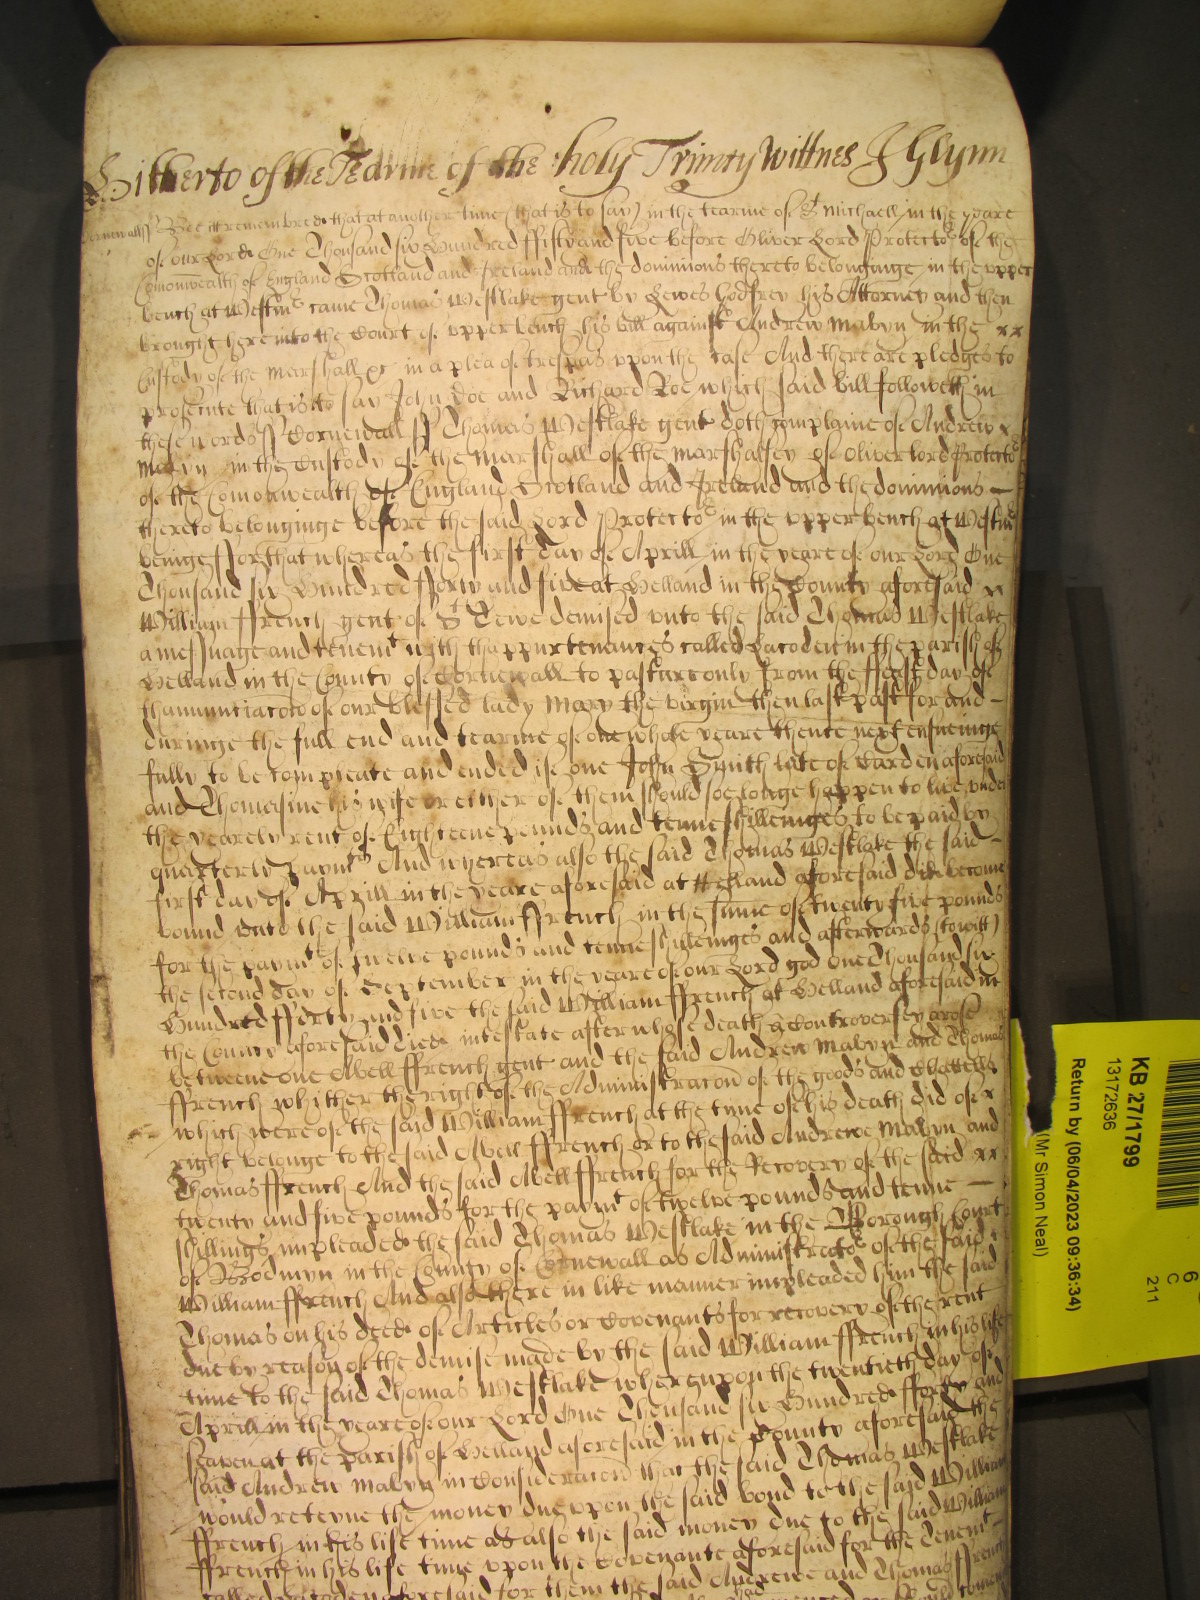 Hitherto of the Tearme of the holy Trinity Wittnes J Glynn
Cornewall ss Bee it remembred that at another time (that is to say) in the tearme of St Michaell in the yeare
of our Lord One Thousand six Hundred ffifty and five before Oliver Lord Protector of the
Comonwealth of England Scotland and Ireland and the dominions thereto belonginge in the upper
bench at Westmr came Thomas Westlake gent by Lewes Godfrey his Attorney and then
brought here into the Court of upper bench his bill against Andrew Mabyn in the xx
Custody of the Marshall &c in a plea of trespas upon the case And there are pledges to
prosecute that is to say John Doe and Richard Roe which said bill followeth in
these words ss Cornewall ss Thomas Westlake gent doth complaine of Andrew x
Mabyn in the Custody of the Marshall of the Marshalsey of Oliver Lord Protector
of the Comonwealth of England Scotland and Ireland and the dominions
thereto belonginge before the said Lord Protector in the upper bench at Westmr
beinge ffor that whereas the first day of Aprill in the yeare of our Lord One
Thousand six Hundred fforty and five at Helland in the County aforesaid xx
William ffrench gent of St Tewe demised unto the said Thomas Westlake
a messuage and tenemt with thappurtenances called Lacoden in the parish of
Helland in the County of Cornewall to pasture only from the ffeast day of
thanunciacon of our blessed lady Mary the virgin then last past for and
duringe the full end and tearme of one whole yeare thence next ensueinge
fully to be compleate and ended if one John Smith late of Carden aforesaid
and Thomasine his wife or either of them should soe longe happen to live under
the yearely rent of Eighteene pounds and tenne shillenges to be paid by
quarterly paymts And whereas also the said Thomas Westlake the said
first day of Aprill in the yeare aforesaid at Helland aforesaid did become
bound unto the said William ffrench in the summe of twenty five pounds
for the paymt of twelve pounds and tenne shillenges and afterwards (to witt)
the second day of September in the yeare of our Lord god One Thousand six
Hundred fforty and five the said William ffrench at Helland aforesaid in
the County aforesaid died intestate after whose death a Controversey arose
betweene one Abell ffrench gent and the said Andrew Mabyn and Thomas
ffrench whither the right of the Administracon of the goods and Chattells
which were of the said William ffrench at the time of his death did of x
right belonge to the said Abell ffrench or to the said Andrewe Mabyn and
Thomas ffrench And the said Abell ffrench for the Recovery of the said xx
twenty and five pounds for the paymt of twelve pounds and tenne
shillings impleaded the said Thomas Westlake in the Borough Court
of Bodmyn in the County of Cornewall as Administrator of the said
William ffrench And also there in like manner impleaded him the said
Thomas on his deed of Articles or Covenants for recovery of the rent
due by reason of the demise made by the said William ffrench in his life
time to the said Thomas Westlake whereupon the twentieth day of
Aprill in the yeare of our Lord One Thousand six Hundred fforty and
seaven at the parish of Helland aforesaid in the County aforesaid the
said Andrew Mabyn in Consideracon that the said Thomas Westlake
would reteyne the money due upon the said bond to the said William
ffrench in his life time as also the said money due to the said William
ffrench in his life time upon the Covenante aforesaid for the Tenemt
called aforesaid for them the said Andrewe and Thomas ffrench
KB 27/1799
13172636
Return by (06/04/2023 09:36:34)
(Mr Simon Neal)
6
C
211